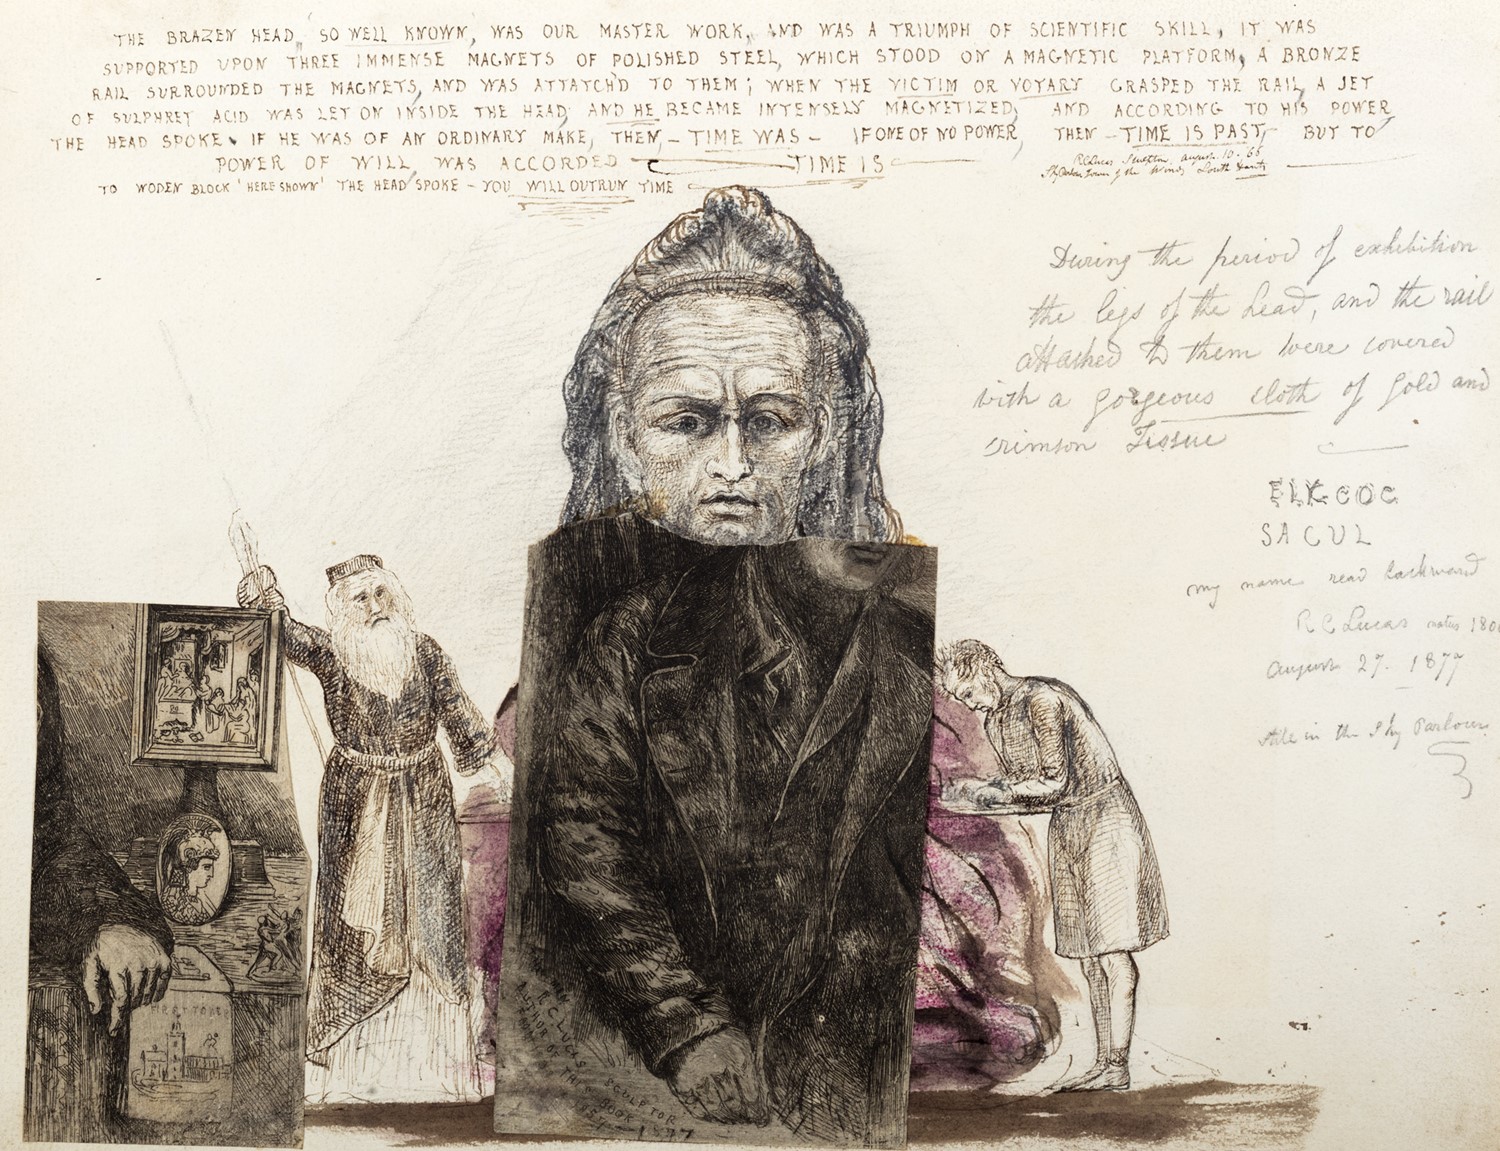 THE BRAZEN HEAD, SO WELL KNOWN, WAS OUR MASTER WORK, AND WAS A TRIUMPH OF SCIENTIFIC SKILL, IT WAS
SUPPORTED UPON THREE IMMENSE MAGNETS OF POLISHED STEEL, WHICH STOOD ON A MAGNETIC PLATFORM, A BRONZE
RAIL SURROUNDED THE MAGNETS, AND WAS ATTATCH'D TO THEM; WHEN THE VICTIM OR VOTARY GRASPED THE RAIL, A JET
OF SULPHRET ACID WAS LET ON INSIDE THE HEAD, AND HE BECAME INTENSELY MAGNETIZED, AND ACCORDING TO HIS POWER
THE HEAD SPOKE. IF HE WAS OF AN ORDINARY MAKE, THEN, – TIME WAS – IF ONE OF NO POWER, THEN – TIME IS PAST, – BUT TO
POWER OF WILL WAS ACCORDED — TIME IS —
R C Lucas august 10 – 65
of the Winds South
TO WODEN BLOCK 'HERE SHOWN' THE HEAD SPOKE – YOU WILL OUTRUN TIME
During the period of exhibition
the legs of the head, and the rail
attached to them were covered
with a gorgeous cloth of gold and
crimson Tissue
SACUL
my name read backward
R C Lucas natus 180
august 27. 1877
still in the Sky Parlour
FIRST TOWER
R. C. LUCAS SCULPTOR
AUTHOR OF THIS BOOK
1877